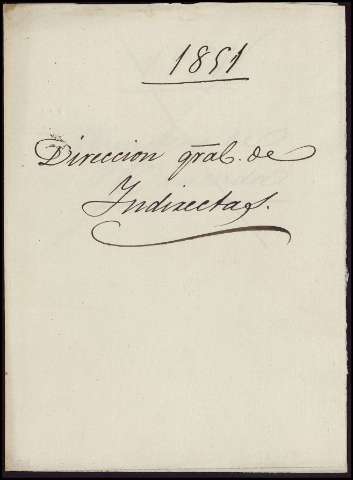 1851
Direccion gral. de
Indirectas.